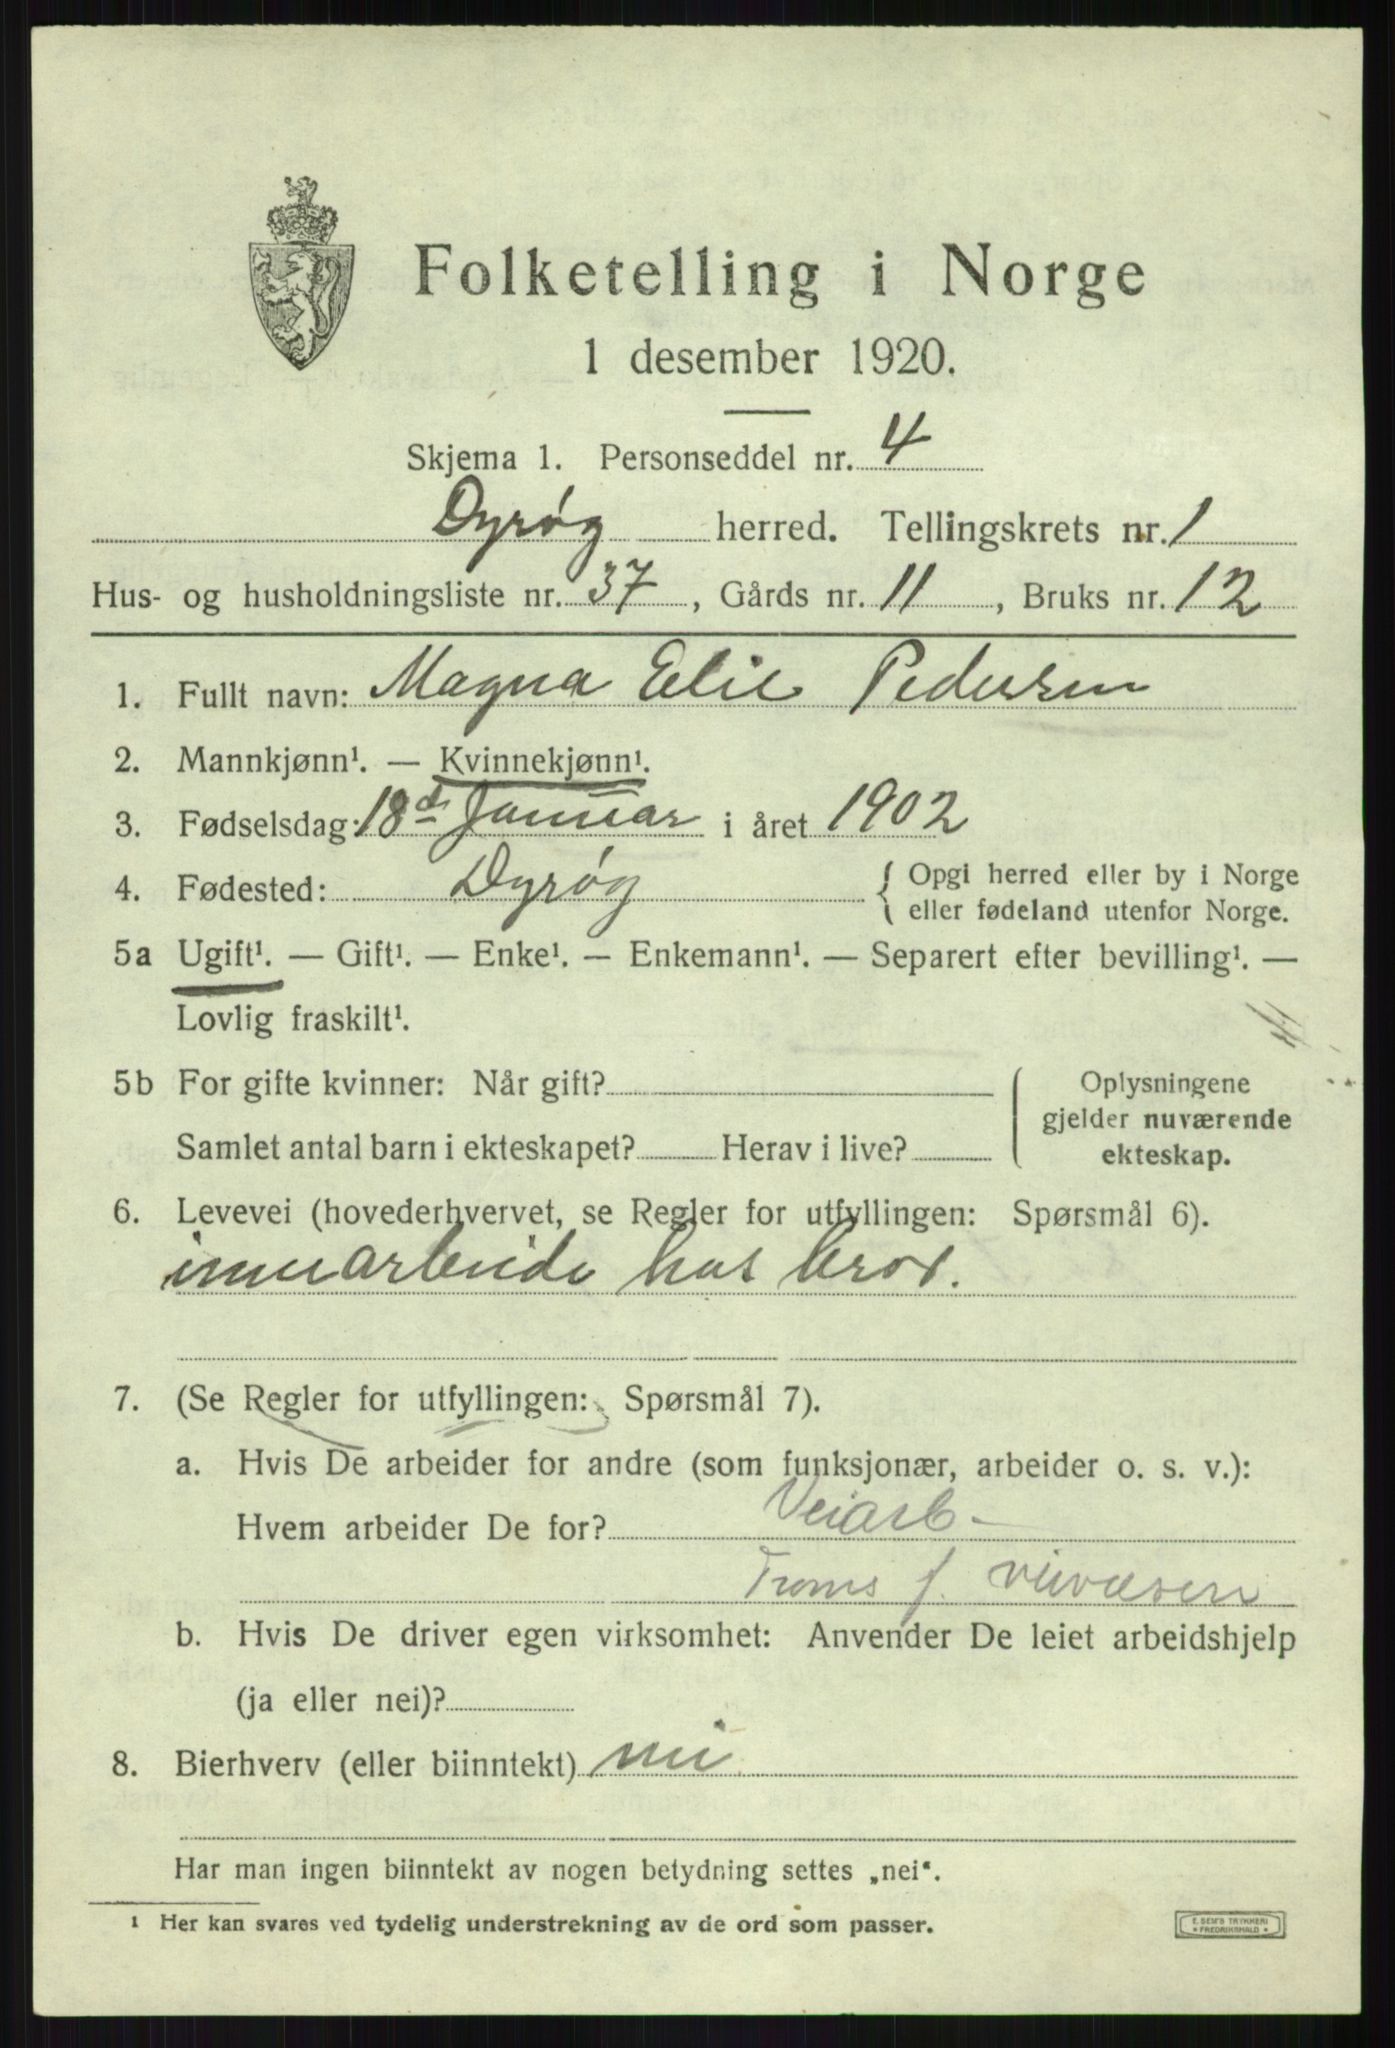 Folketelling i Norge
1 desember 1920.
Skjema 1. Personseddel nr. 4
Dyrøy herred. Tellingskrets nr. 1
Hus- og husholdningsliste nr. 37, Gårds nr. 11, Bruks nr. 12
1. Fullt navn: Magna Elie Pedersen
2. Mannkjønn¹. — Kvinnekjønn¹.
3. Fødselsdag: 18de Januar i året 1902
4. Fødested: Dyrøy { Opgi herred eller by i Norge
eller fødeland utenfor Norge.
5a Ugift¹. — Gift¹. — Enke¹. — Enkemann¹. — Separert efter bevilling¹. —
Lovlig fraskilt¹.
5b For gifte kvinner: Når gift? Oplysningene
gjelder nuværende
Samlet antal barn i ekteskapet? Herav i live? ekteskap.
6. Levevei (hovederhvervet, se Regler for utfyllingen: Spørsmål 6).
innearbeide hos bror.
7. (Se Regler for utfyllingen: Spørsmål 7).
a. Hvis De arbeider for andre (som funksjonær, arbeider o. s. v.):
Hvem arbeider De for? Veiarb-
Troms f. veivæsen
b. Hvis De driver egen virksomhet: Anvender De leiet arbeidshjelp
(ja eller nei)?
8. Bierhverv (eller biinntekt) nei
Har man ingen biinntekt av nogen betydning settes „nei“.
¹ Her kan svares ved tydelig understrekning av de ord som passer.
E. SEM'S TRYKKERI
FREDRIKSHALD